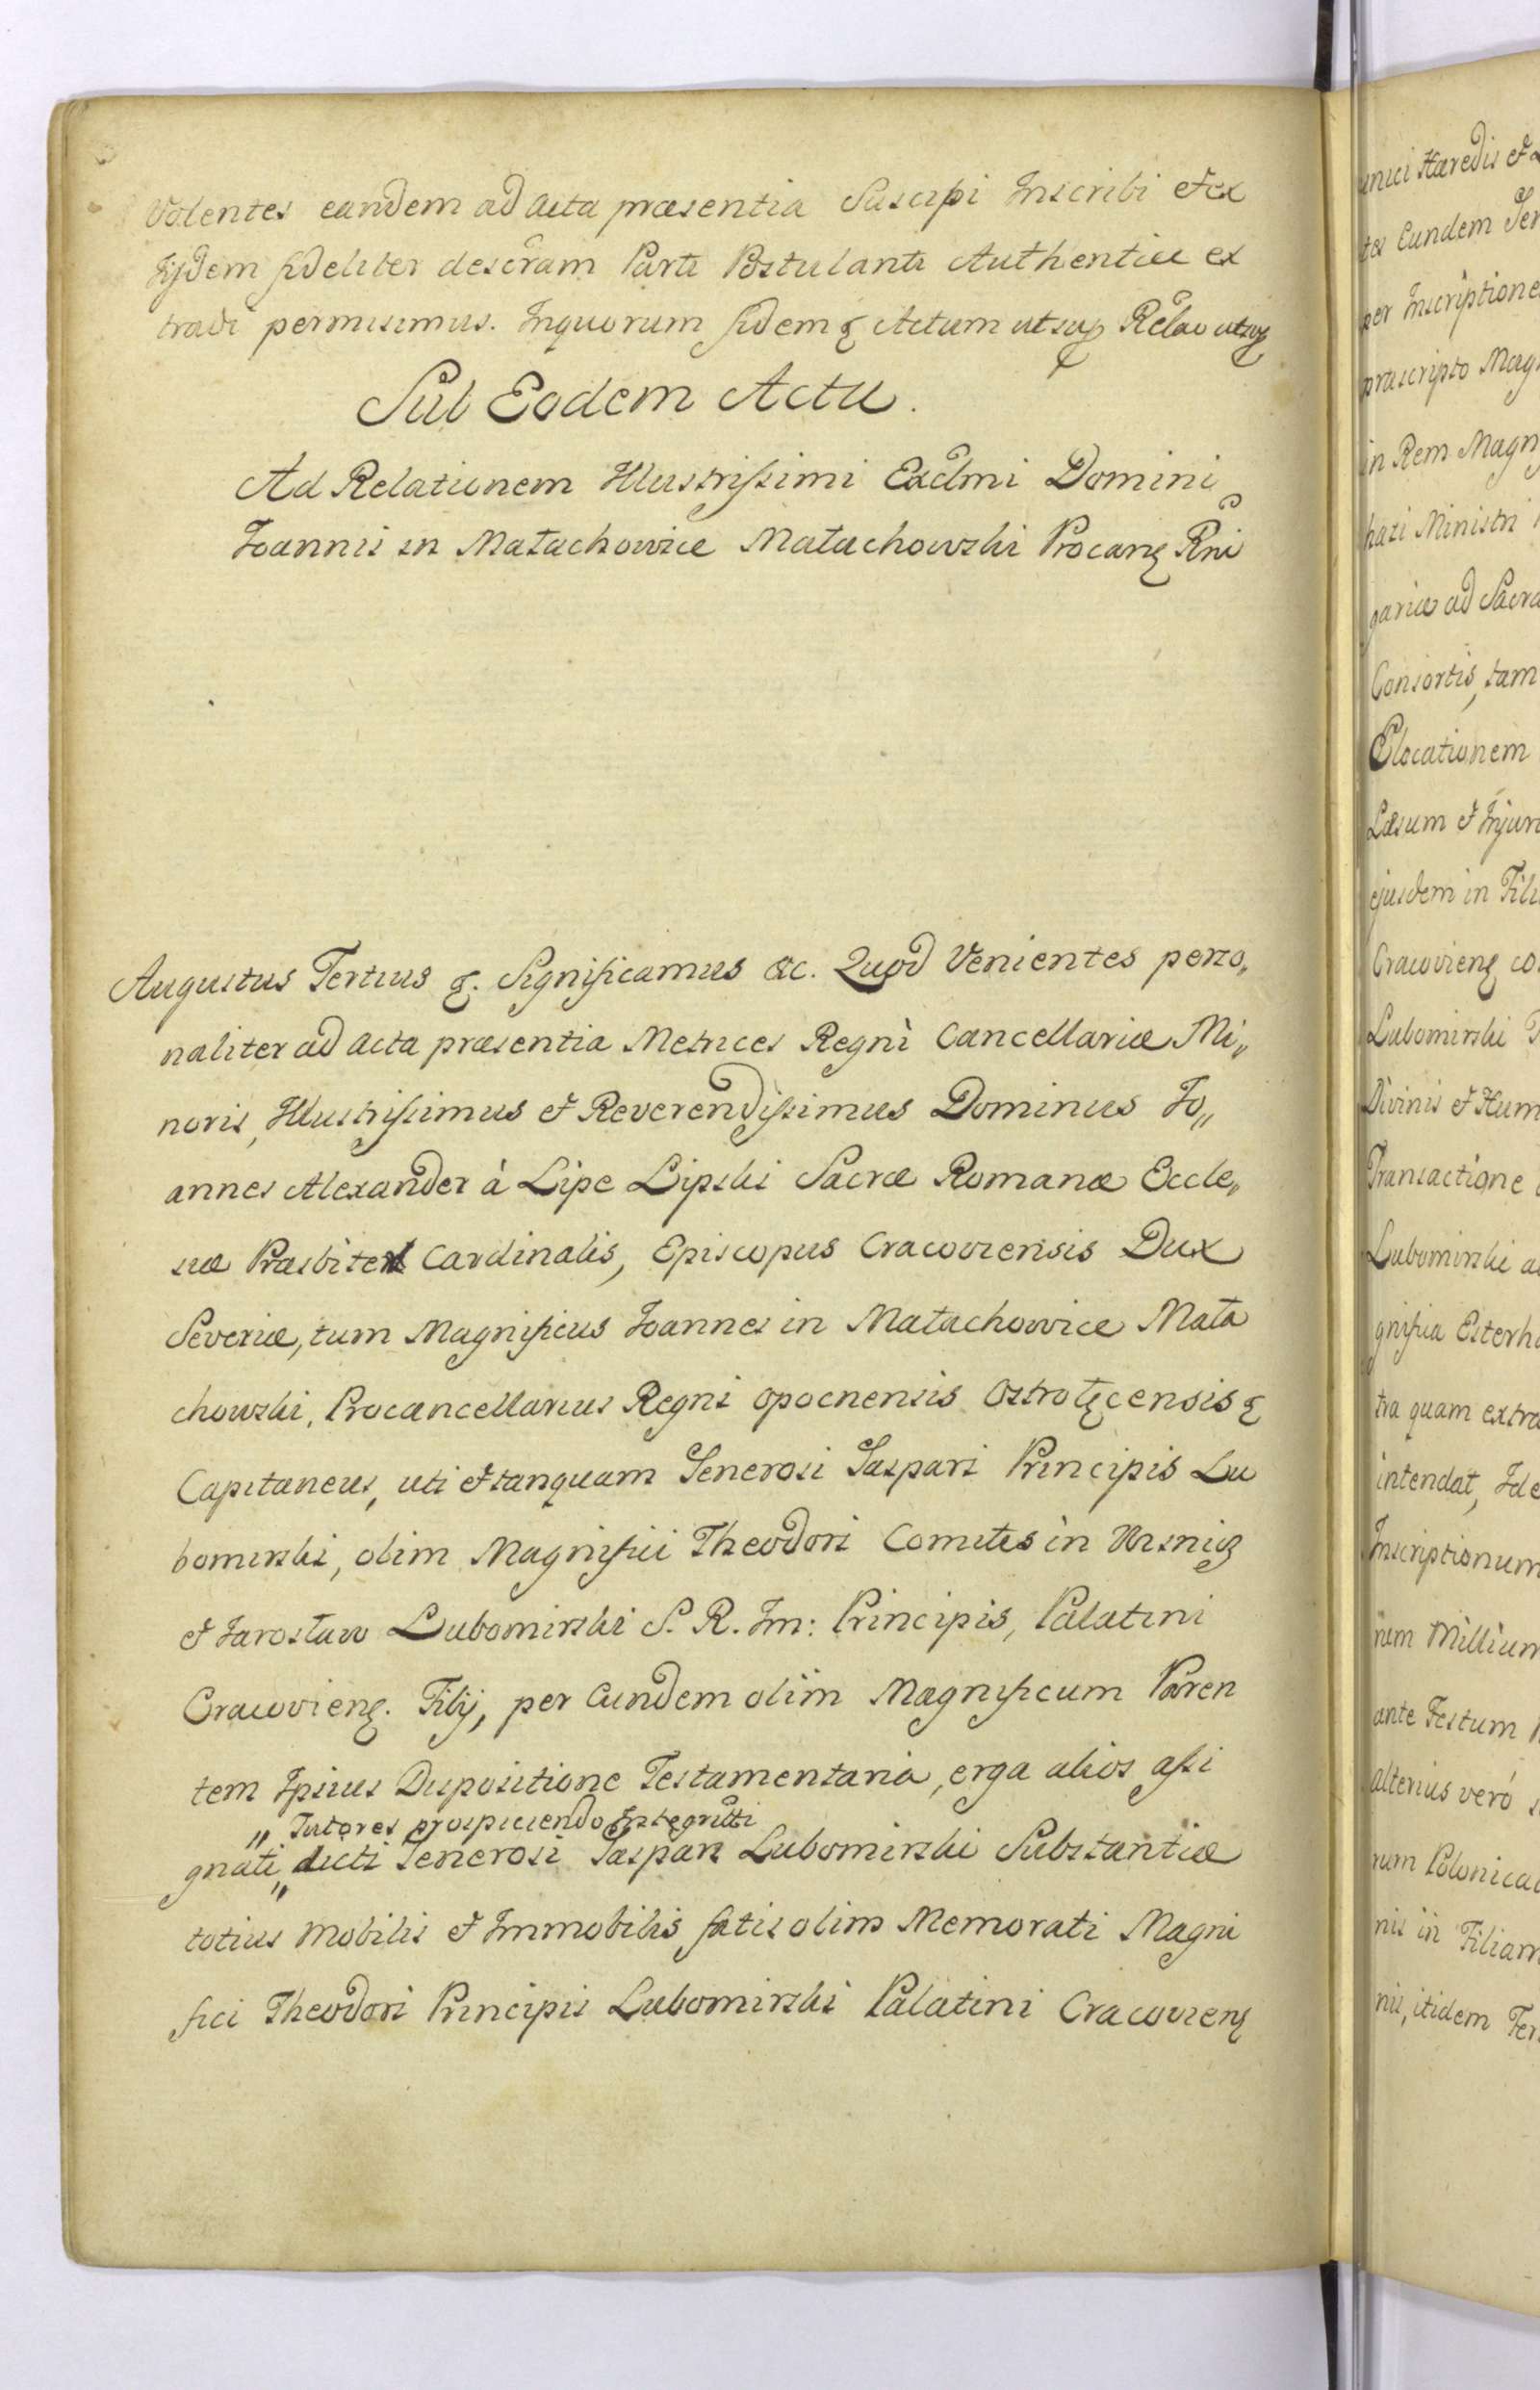 Volentes eandem ad Acta præsentia Suscipi Inscribi et ex
Iisdem fideliter descram Parti Postulanti Authentice ex
tradi permisimus. In quorum fidem &c Actum ut sup Relao ut sup
Sub Eodem Actu.
Ad Relationem Illustrissimi Excllmi Domini
Joannis in Małachowice Małachowski Procanc Rni
Augustus Tertius &c. Significamus &c. Quod Venientes perso„
naliter ad Acta præsentia Metrices Regni Cancellariæ Mi„
noris, Illustrissimus et Reverendissimus Dominus Jo„
annes Alexander à Lipe Lipski Sacræ Romanæ Eccle„
siæ Præsbiter Cardinalis, Episcopus Cracoviensis Dux
Severiæ, tum Magnificus Joannes in Małachowice Mała
chowski, Procancellarius Regni Opocnensis Ostrołęcensis &c
Capitaneus, uti et tanquam Generosi Gaspari Principis Lu
bomirski, olim Magnifici Theodori Comitis in Wisnicz
et Jarosław Lubomirski S. R. Im: Principis, Palatini
Cracovien. Filij, per Eundem olim Magnificum Paren
tem Ipsius Dispositione Testamentaria, erga alios assi
„ Tutores prospiciendo Integritti
gnati„ dicti Generosi Gaspari Lubomirski Substantiæ
totius Mobilis et Immobilis fatis olim Memorati Magni
fici Theodori Principis Lubomirski Palatini Cracovien
unici Hæredis et
tes Eundem
per Inscriptione
præscripto Mag
in Rem Magn
hazi Ministri
gariæ ad Sacra
Consortis, tam
Elocationem
Læsum et Injur
ejusdem in Fili
Cracovien co
Lubomirski
Divinis et Hum
Transactione
Lubomirski a
gnifica Esterh
tra quam extra
intendat, Ide
Inscriptionum
rum Millium
ante Festum
alterius verò
rum Polonical
nis in Filiam
nis, itidem Fer